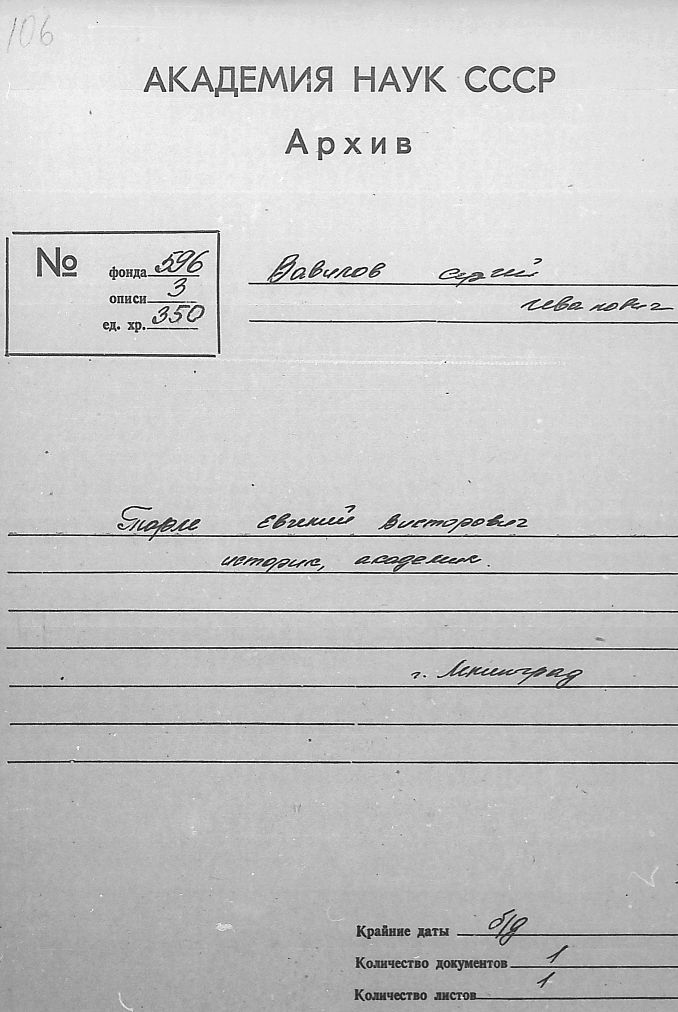 106
АКАДЕМИЯ НАУК СССР
Архив
№
фонда 596
описи 3
ед. хр. 350
Вавилов Сергей
Иванович
Тарле Евгений Викторович
историк, академик.
г. Ленинград
Крайние даты б/д
Количество документов 1
Количество листов 1